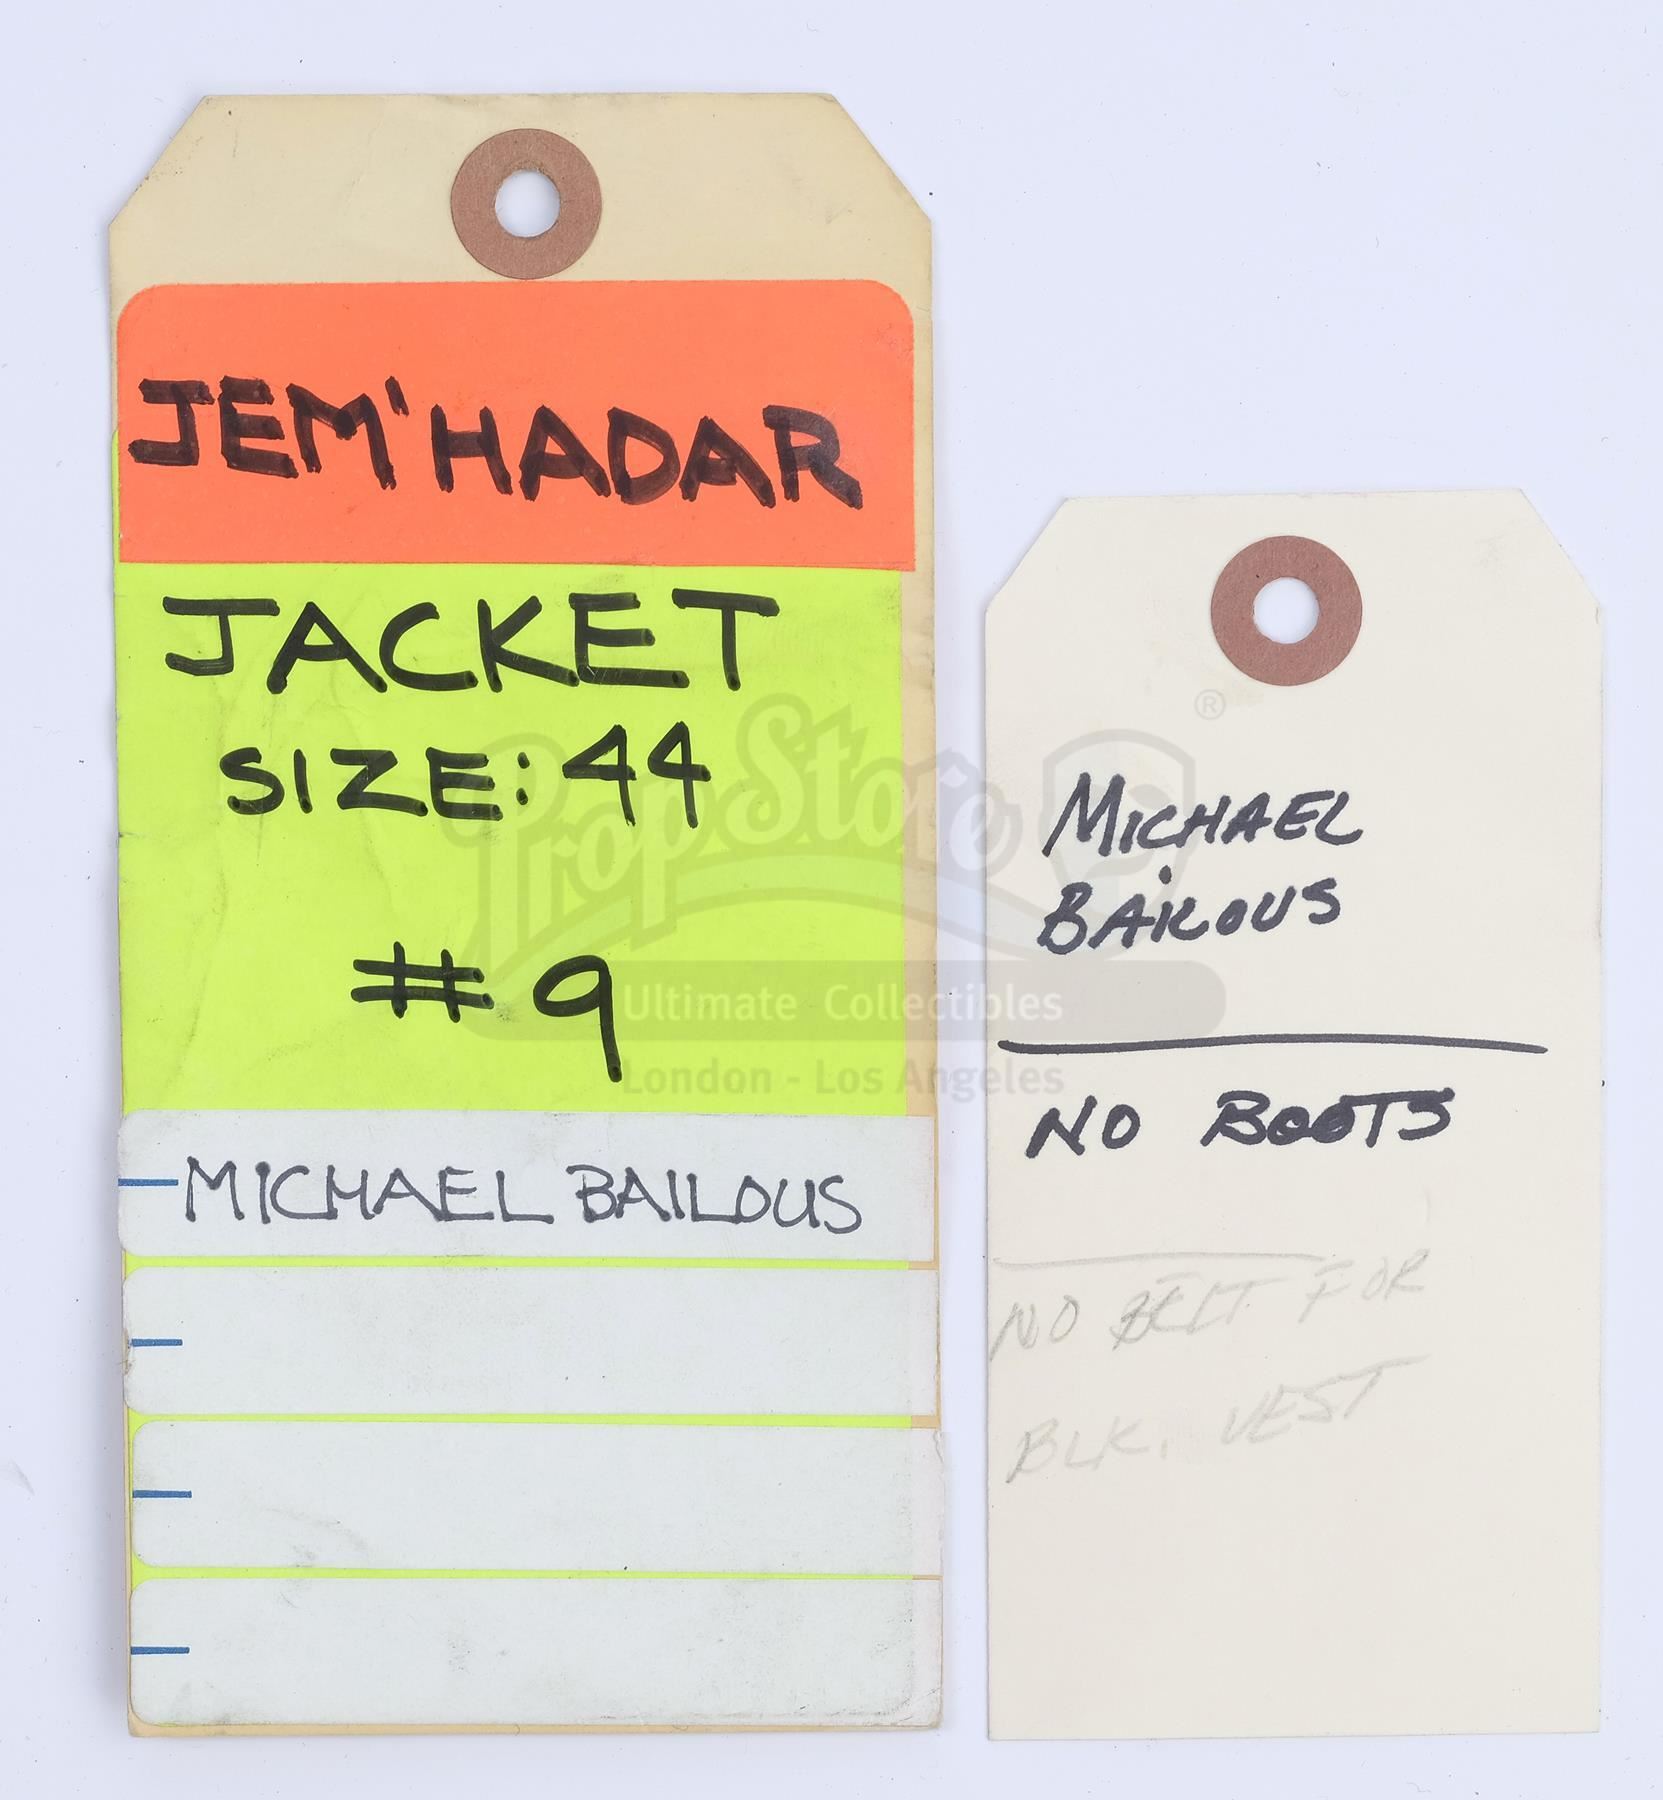 JEM'HADAR
JACKET
SIZE: 44
# 9
MICHAEL BAILOUS
MICHAEL
BAILOUS
NO BOOTS
NO BELT FOR
BLK. VEST
PropStore ®
Ultimate Collectibles
London - Los Angeles